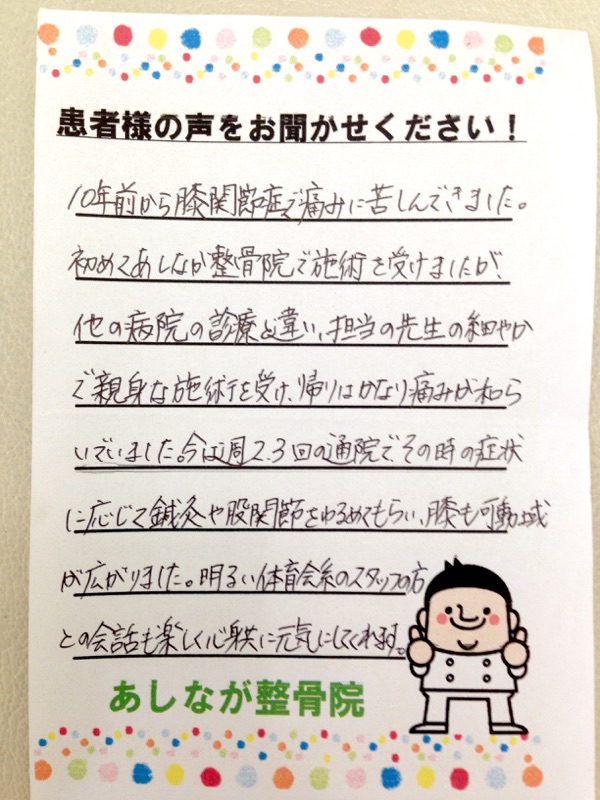 患者様の声をお聞かせください！
10年前から膝関節症で痛みに苦しんできました。
初めてあしなが整骨院で施術を受けましたが、
他の病院の診療と違い、担当の先生の細やか
で親身な施術を受け、帰りはかなり痛みが和ら
いでいました。今は週2.3回の通院でその時の症状
に応じて鍼灸や股関節をゆるめてもらい、膝も可動域
が広がりました。明るい体育会系のスタッフの方
との会話も楽しく心身共に元気にしてくれます。
あしなが整骨院